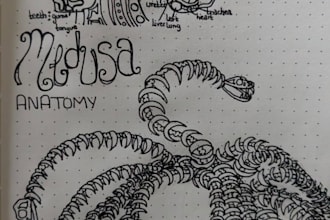 teeth+gums
tongue
left lung
liver
trachea
heart
Medusa
ANATOMY